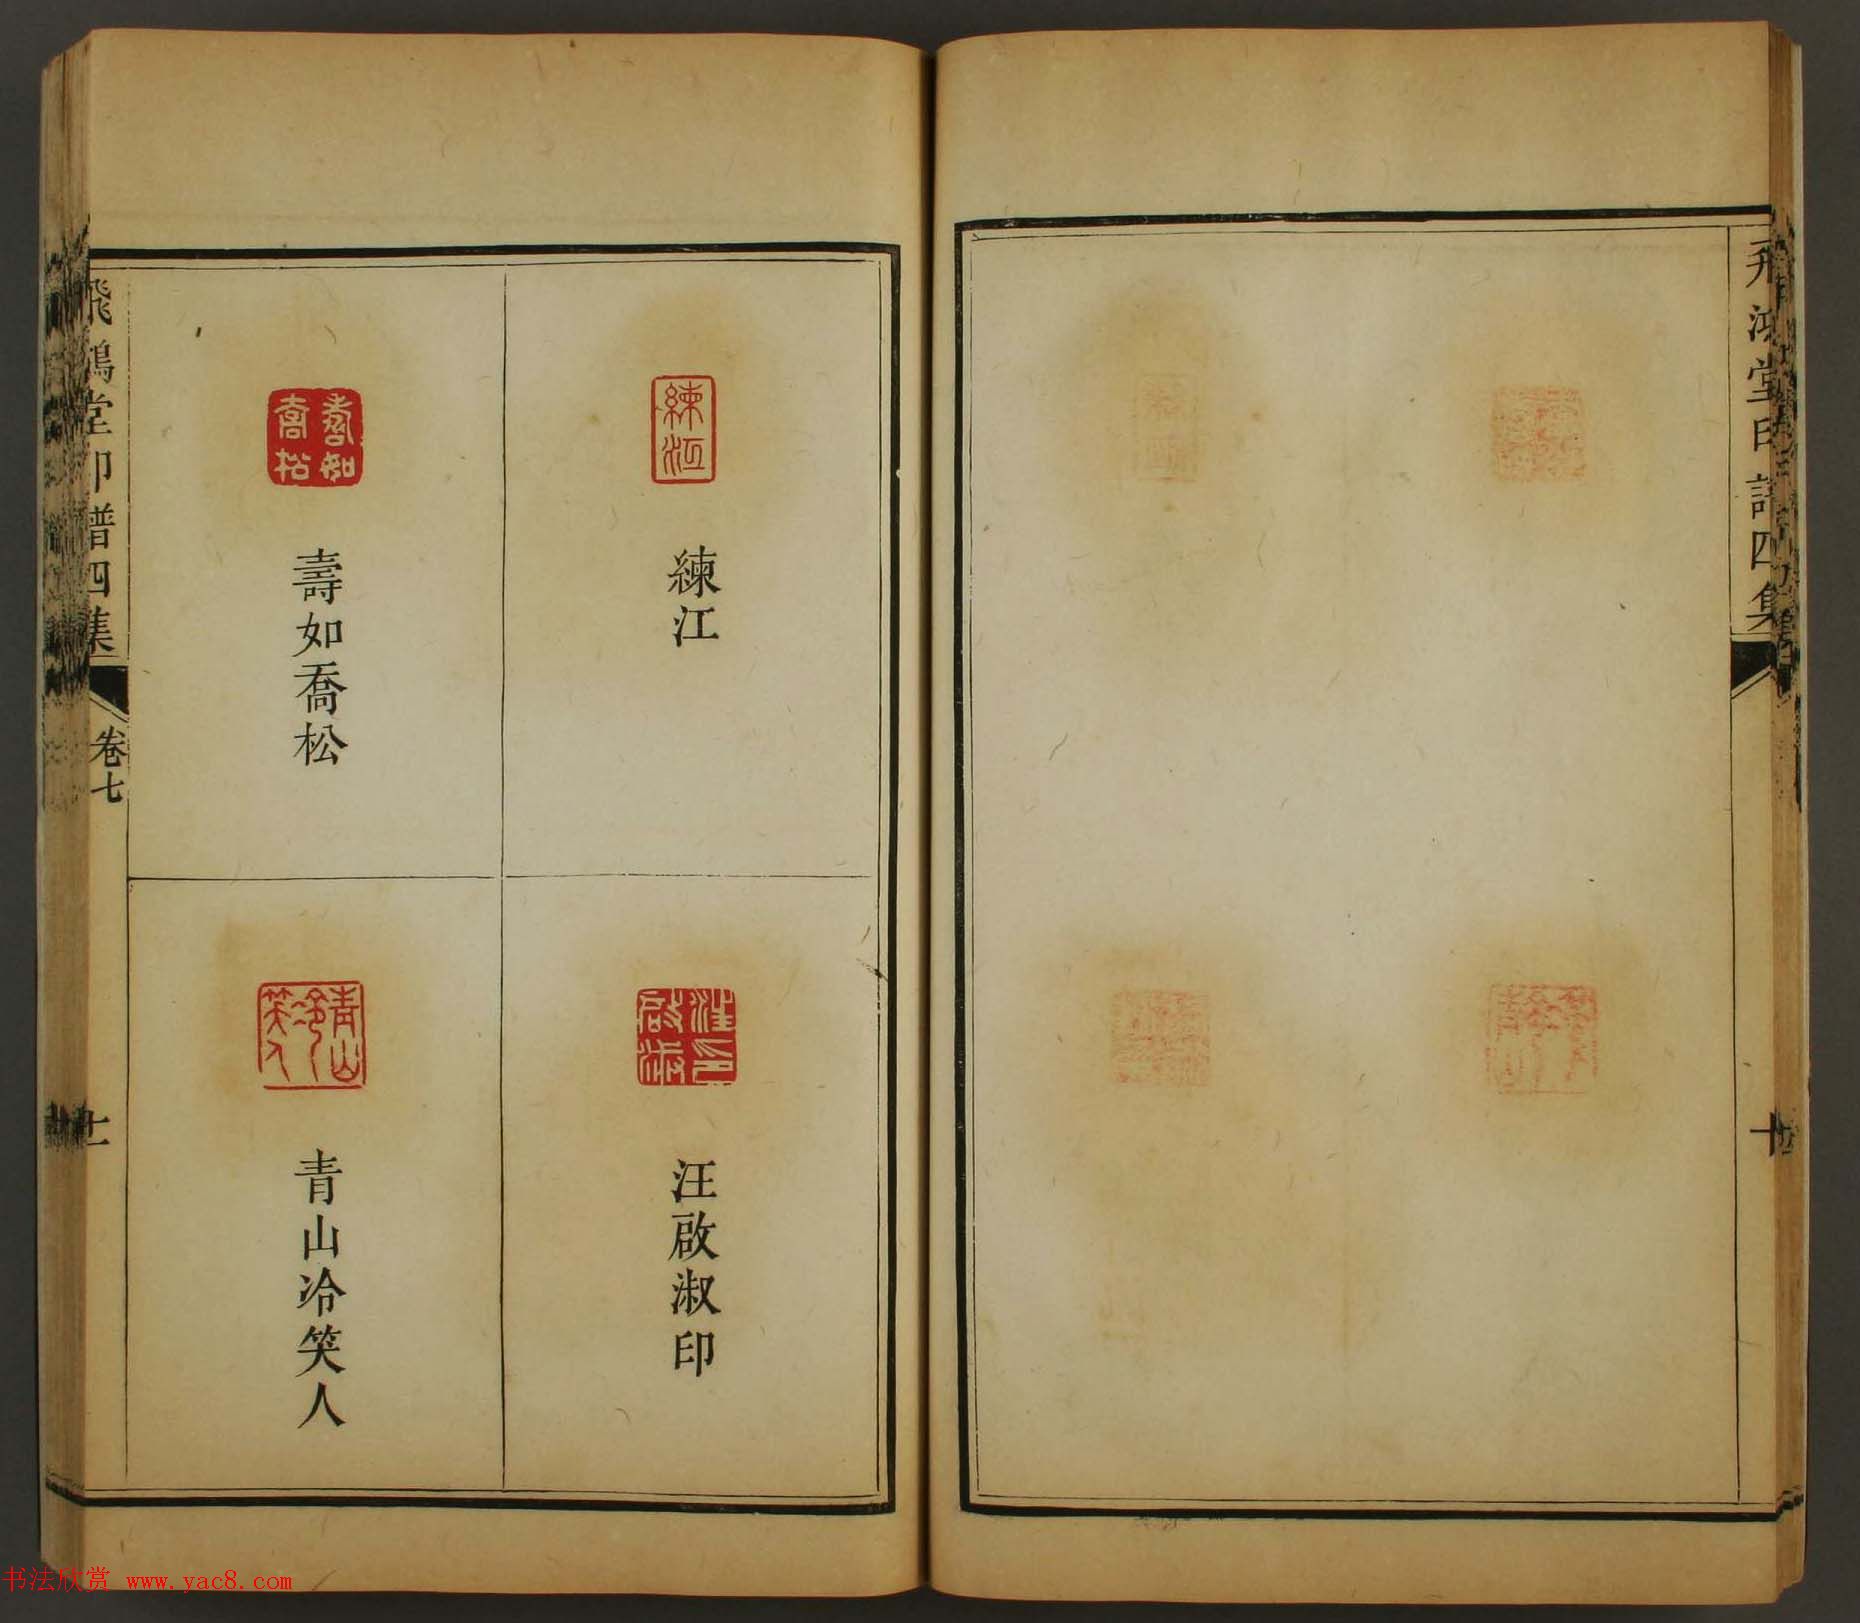 飛鴻堂印譜四集
十
練江
練江
汪啟淑印
汪啟淑印
壽如喬松
壽如喬松
青山冷笑人
青山冷笑人
飛鴻堂印譜四集
卷七
十一
书法欣赏 www.yac8.com